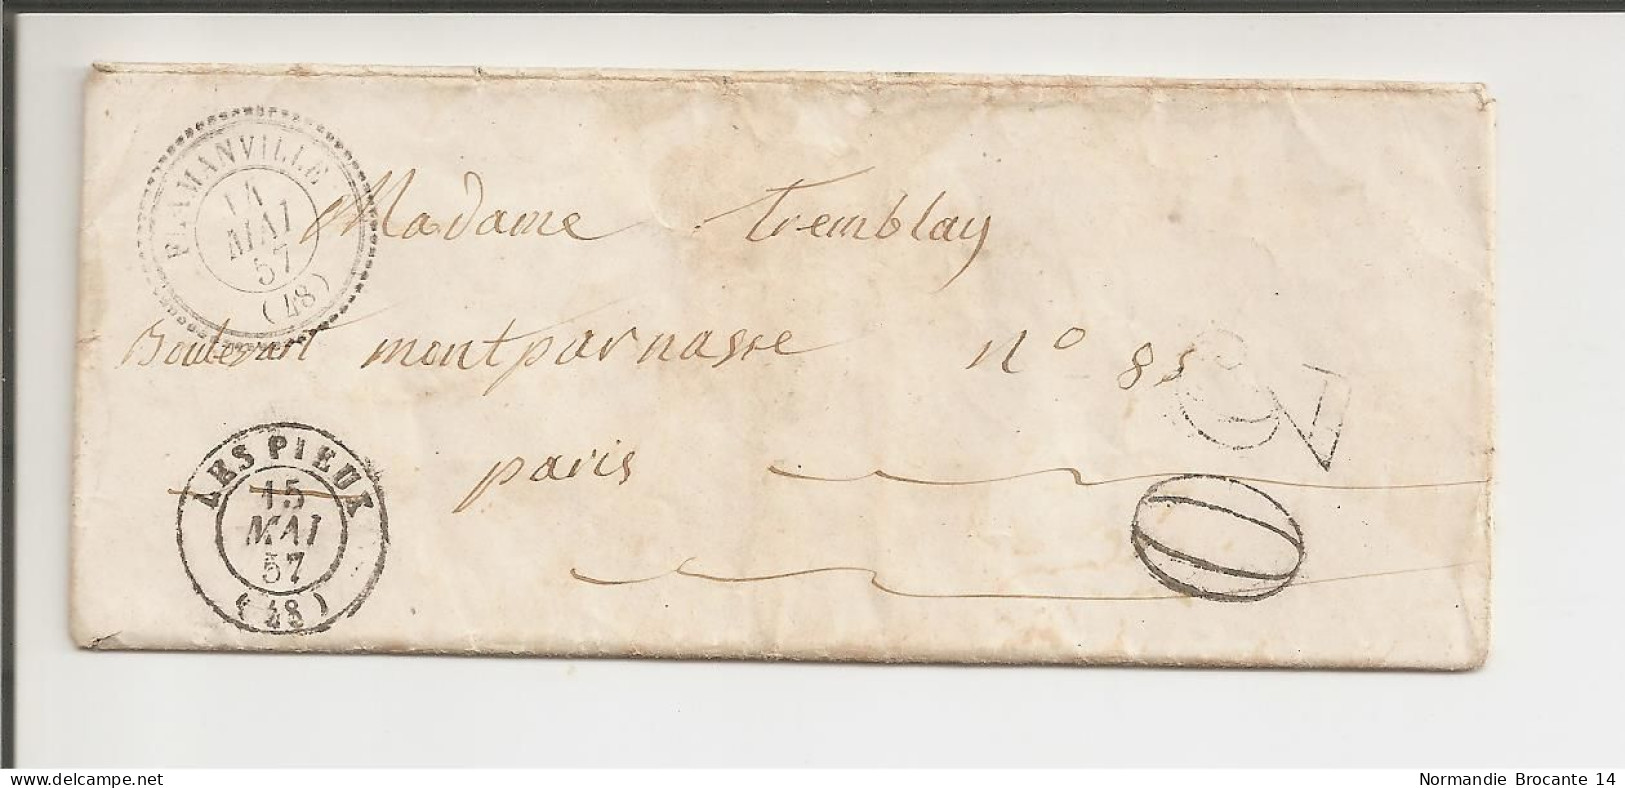 FLAMANVILLE
14
MAI
57
(48)
Madame Tremblay
Boulevart montparnasse n° 85
paris
LES PIEUX
15
MAI
57
(48)
Normandie Brocante 14